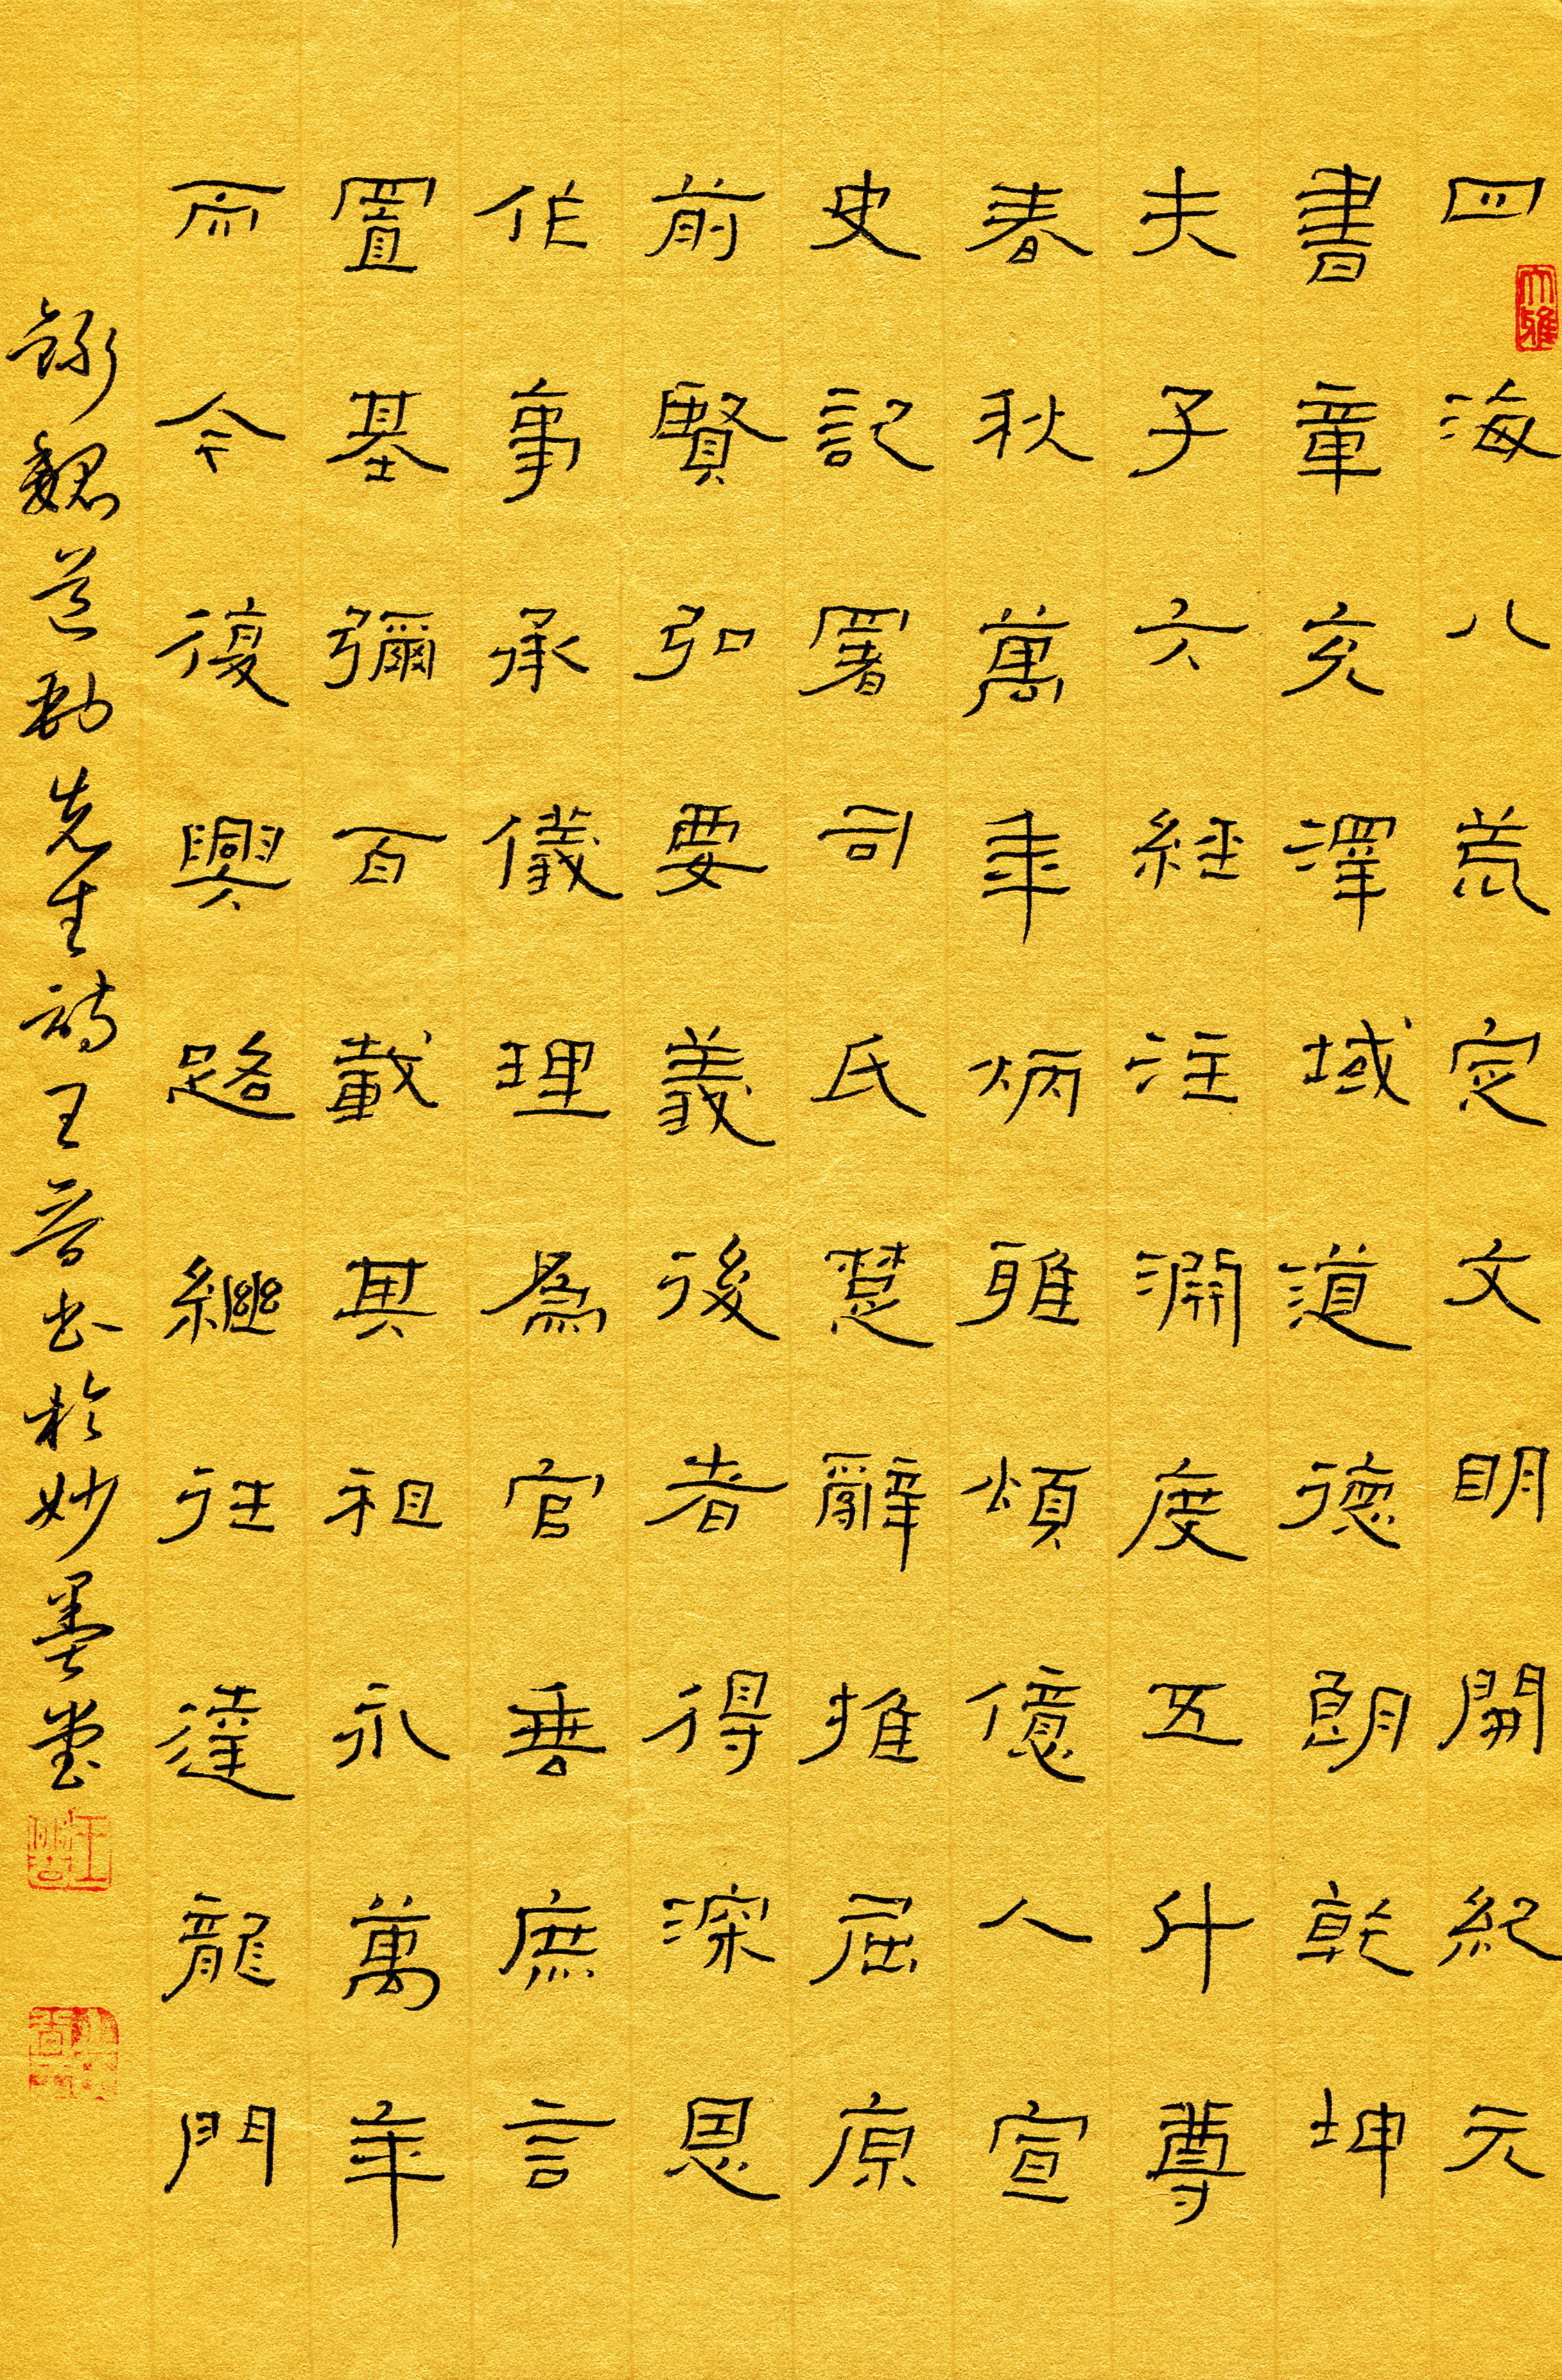 四海八荒定文明開紀元
書章充澤域道德朗乾坤
夫子六經注淵度五升尊
春秋萬年炳雅頌億人宣
史記署司氏楚辭推屈原
前賢弘要義後者得深恩
作事承儀理為官垂庶言
置基彌百載其祖永萬年
而今復興路繼往達龍門
錄魏道勳先生詩王音書於妙墨堂
大雅